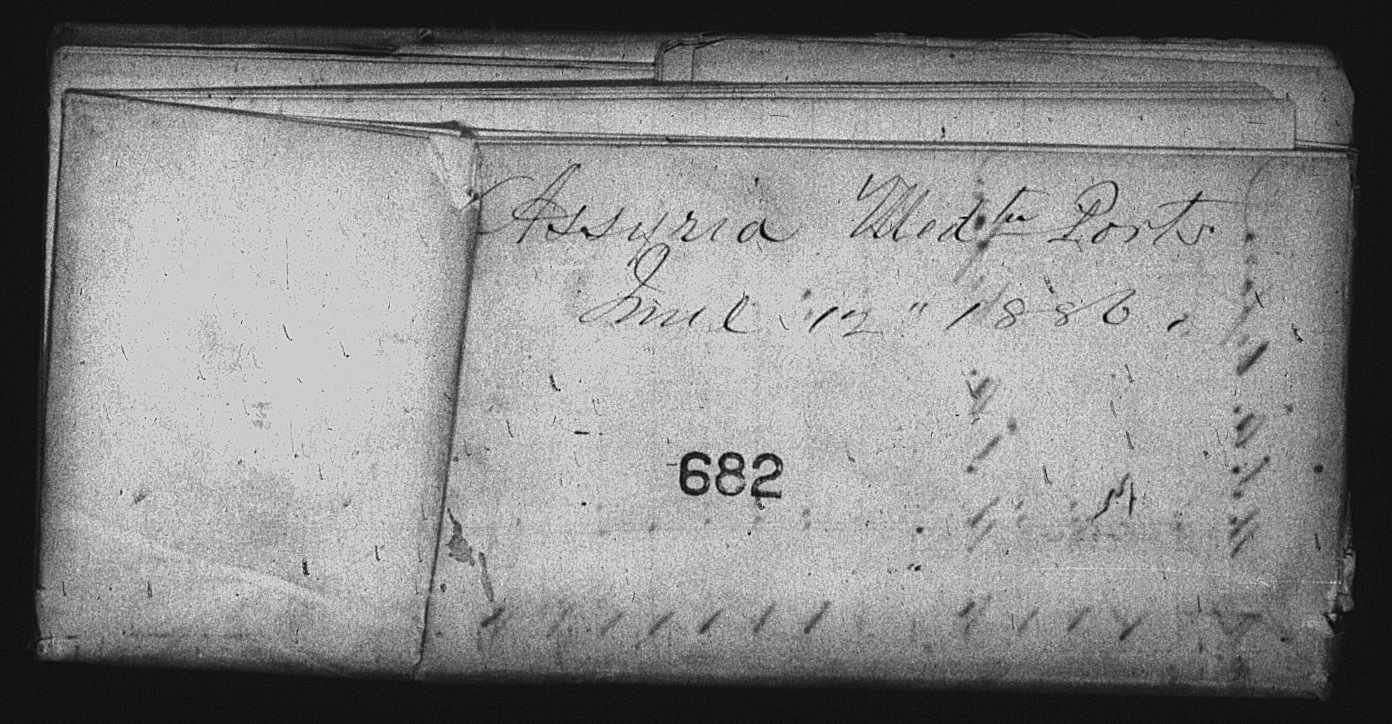 Assyria Medtn Ports
12" 1886.
682